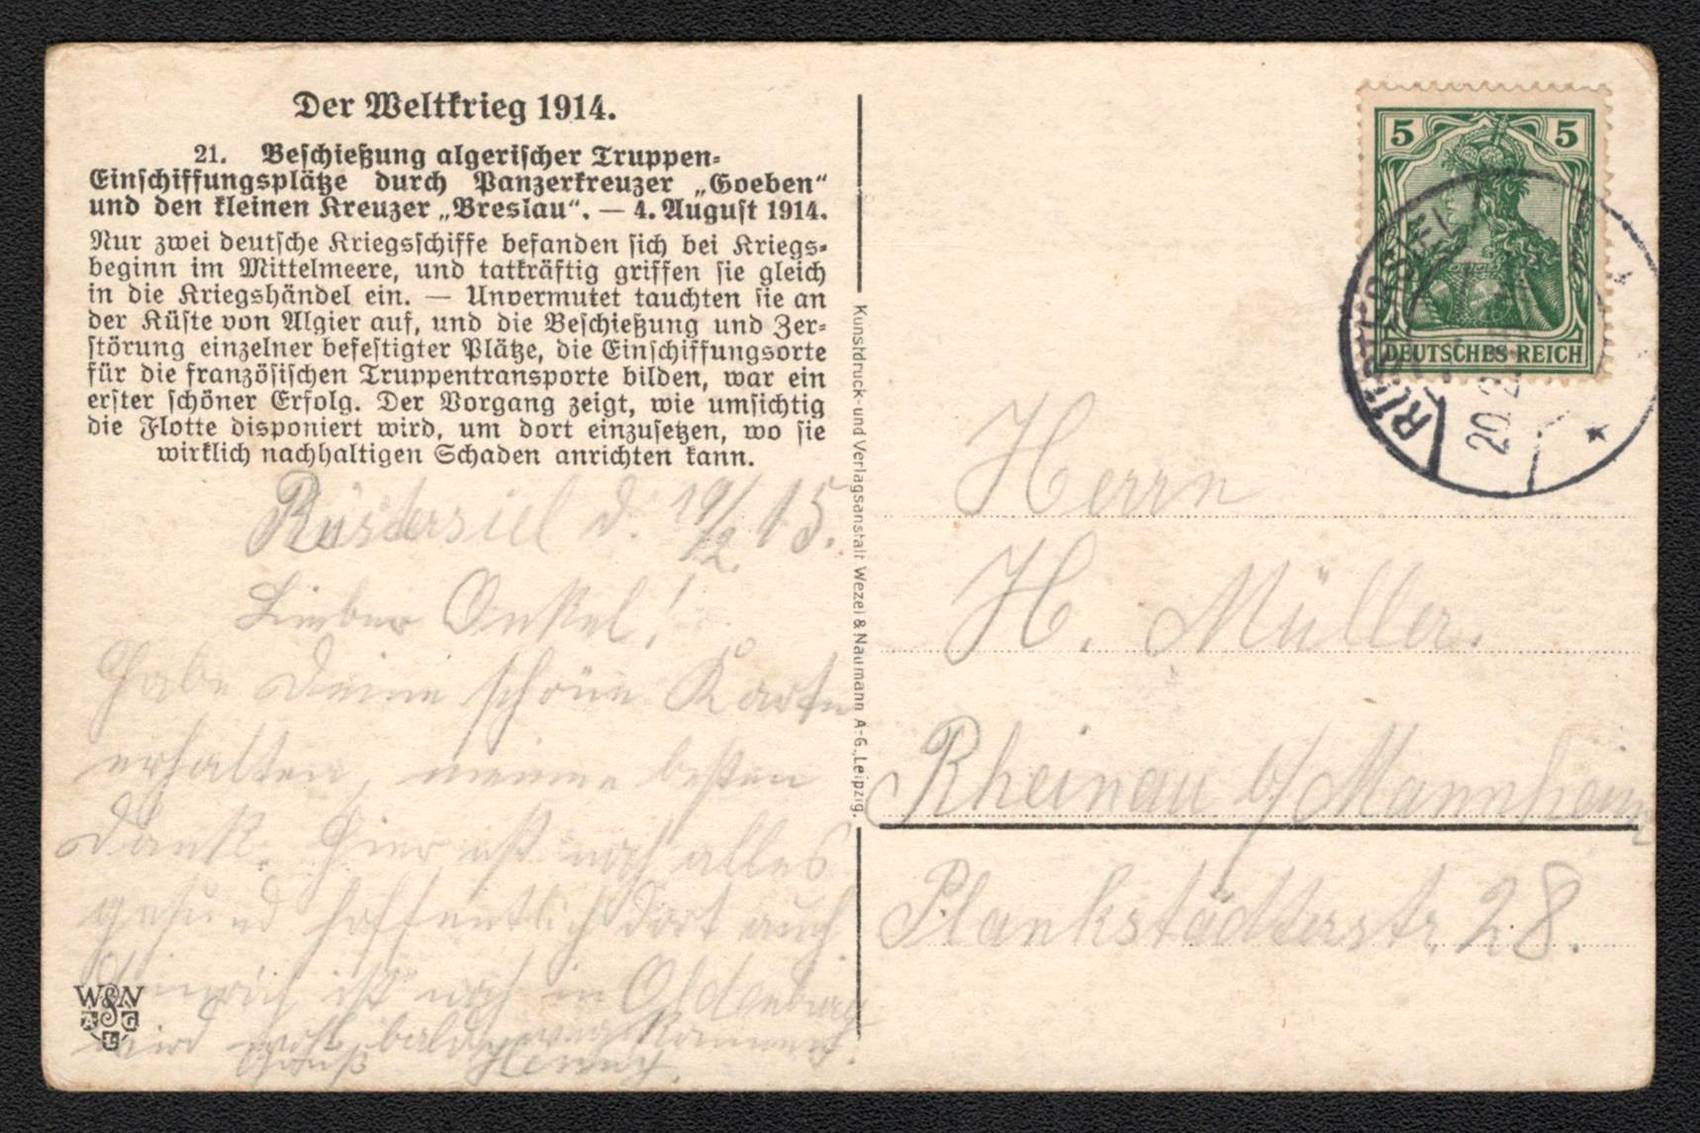 Der Weltkrieg 1914.
21. Beschießung algerischer Truppen-
Einschiffungsplätze durch Panzerkreuzer „Goeben“
und den kleinen Kreuzer „Breslau“. — 4. August 1914.
Nur zwei deutsche Kriegsschiffe befanden sich bei Kriegs-
beginn im Mittelmeere, und tatkräftig griffen sie gleich
in die Kriegshändel ein. — Unvermutet tauchten sie an
der Küste von Algier auf, und die Beschießung und Zer-
störung einzelner befestigter Plätze, die Einschiffungsorte
für die französischen Truppentransporte bilden, war ein
erster schöner Erfolg. Der Vorgang zeigt, wie umsichtig
die Flotte disponiert wird, um dort einzusetzen, wo sie
wirklich nachhaltigen Schaden anrichten kann.
Rüstersiel d. 19/2. 15.
Lieber Onkel!
Habe Deine schöne Karte
erhalten, meinen besten
Dank. Hier ist noch alles
gesund hoffentlich dort auch
Heinrich ist noch in Oldenburg
wird wohl bald weg kommen.
Gruß Henny.
W&N
A G
L
Kunstdruck- und Verlagsanstalt Wezel & Naumann A.-G., Leipzig.
5 5
DEUTSCHES REICH
RÜSTERSIEL
20. 2.
Herrn
H. Müller.
Rheinau b/Mannheim
Plankstädterstr. 28.